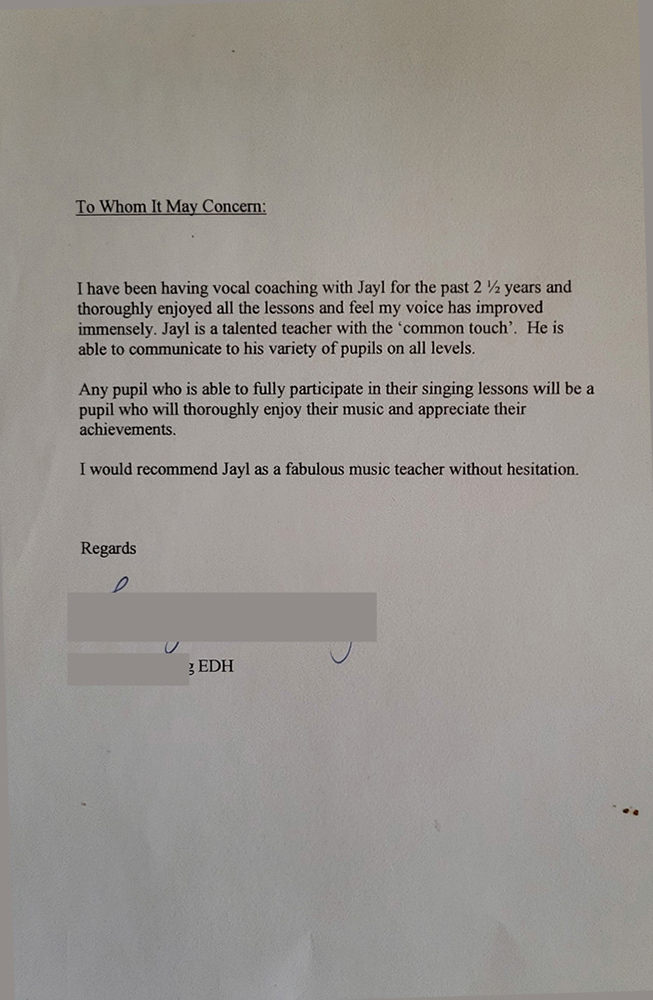 To Whom It May Concern:
I have been having vocal coaching with Jayl for the past 2 ½ years and
thoroughly enjoyed all the lessons and feel my voice has improved
immensely. Jayl is a talented teacher with the ‘common touch’.  He is
able to communicate to his variety of pupils on all levels.
Any pupil who is able to fully participate in their singing lessons will be a
pupil who will thoroughly enjoy their music and appreciate their
achievements.
I would recommend Jayl as a fabulous music teacher without hesitation.
Regards
EDH